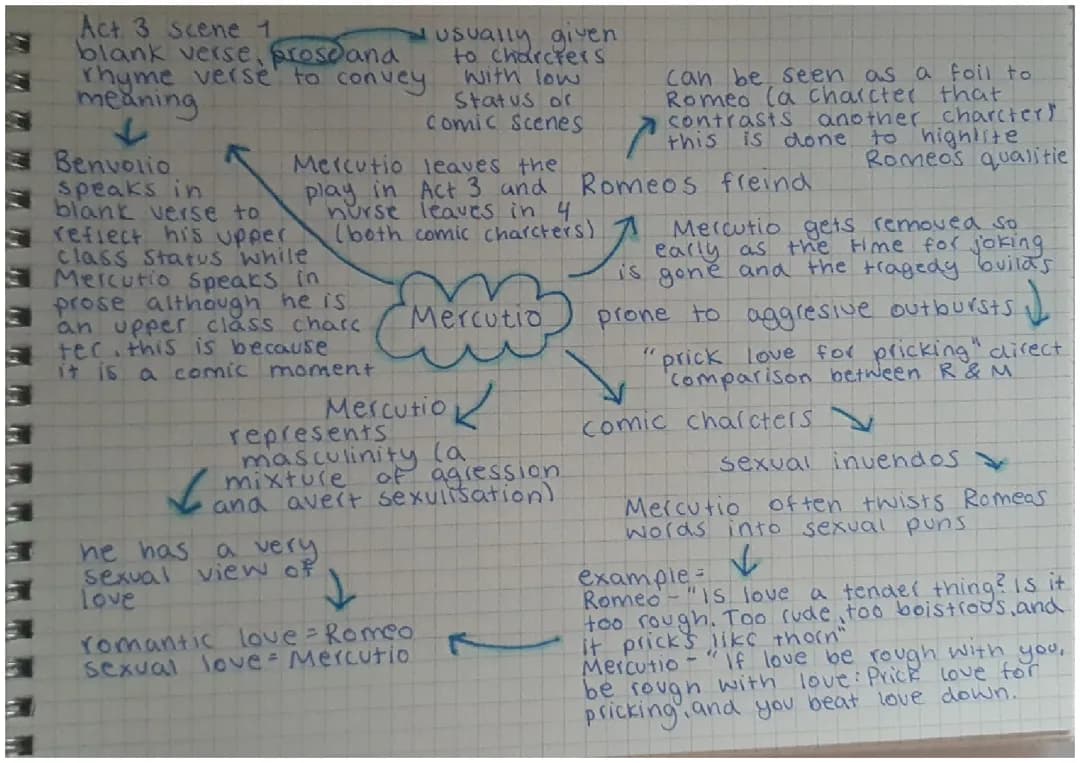 Act 3 scene 1
blank verse, prose and
rhyme verse to convey
meaning
usually given
to charcters
with low
status or
comic scenes
Benvolio
speaks in
blank verse to
reflect his upper
class status while
Mercutio speaks in
prose although he is
an upper class charc
ter, this is because
it is a comic moment
Mercutio leaves the
play in Act 3 and
nurse leaves in 4
(both comic charcters)
can be seen as a foil to
Romeo (a charcter that
contrasts another charcter)
this is done to highlite
Romeos qualitie
Romeos freind
Mercutio gets removed so
early as the time for joking
is gone and the tragedy builds
Mercutio
prone to aggresive outbursts
"prick love for pricking" direct
comparison between R & M
comic charcters
sexual invendos
Mercutio often twists Romeos
words into sexual puns
example=
Romeo - "Is love a tender thing? Is it
too rough. Too rude, too boistrous, and
it pricks like thorn"
Mercutio - "If love be rough with you,
be rough with love: Prick love for
pricking, and you beat love down.
Mercutio
represents
masculinity (a
mixture of agression
and avert sexulisation)
he has a very
sexual view of
love
romantic love = Romeo
sexual love = Mercutio